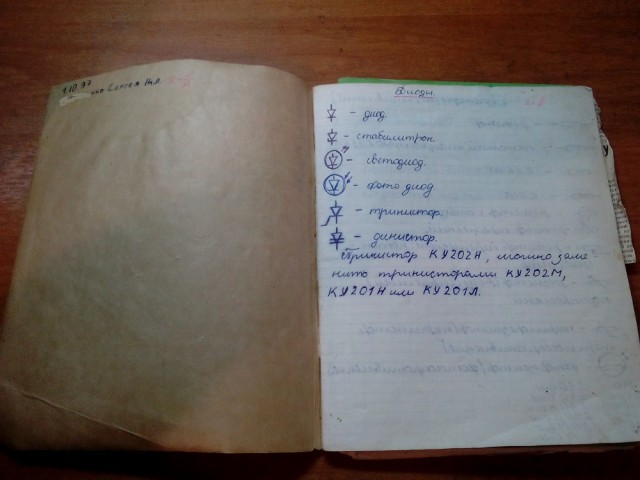 1.10.97
Сергея
Диоды.
– диод.
– стабилитрон.
– светодиод.
– фото диод
– тринистор.
– динистор.
Тринистор КУ202Н, можно заме
нить тринисторами КУ202М,
КУ201Н или КУ201Л.